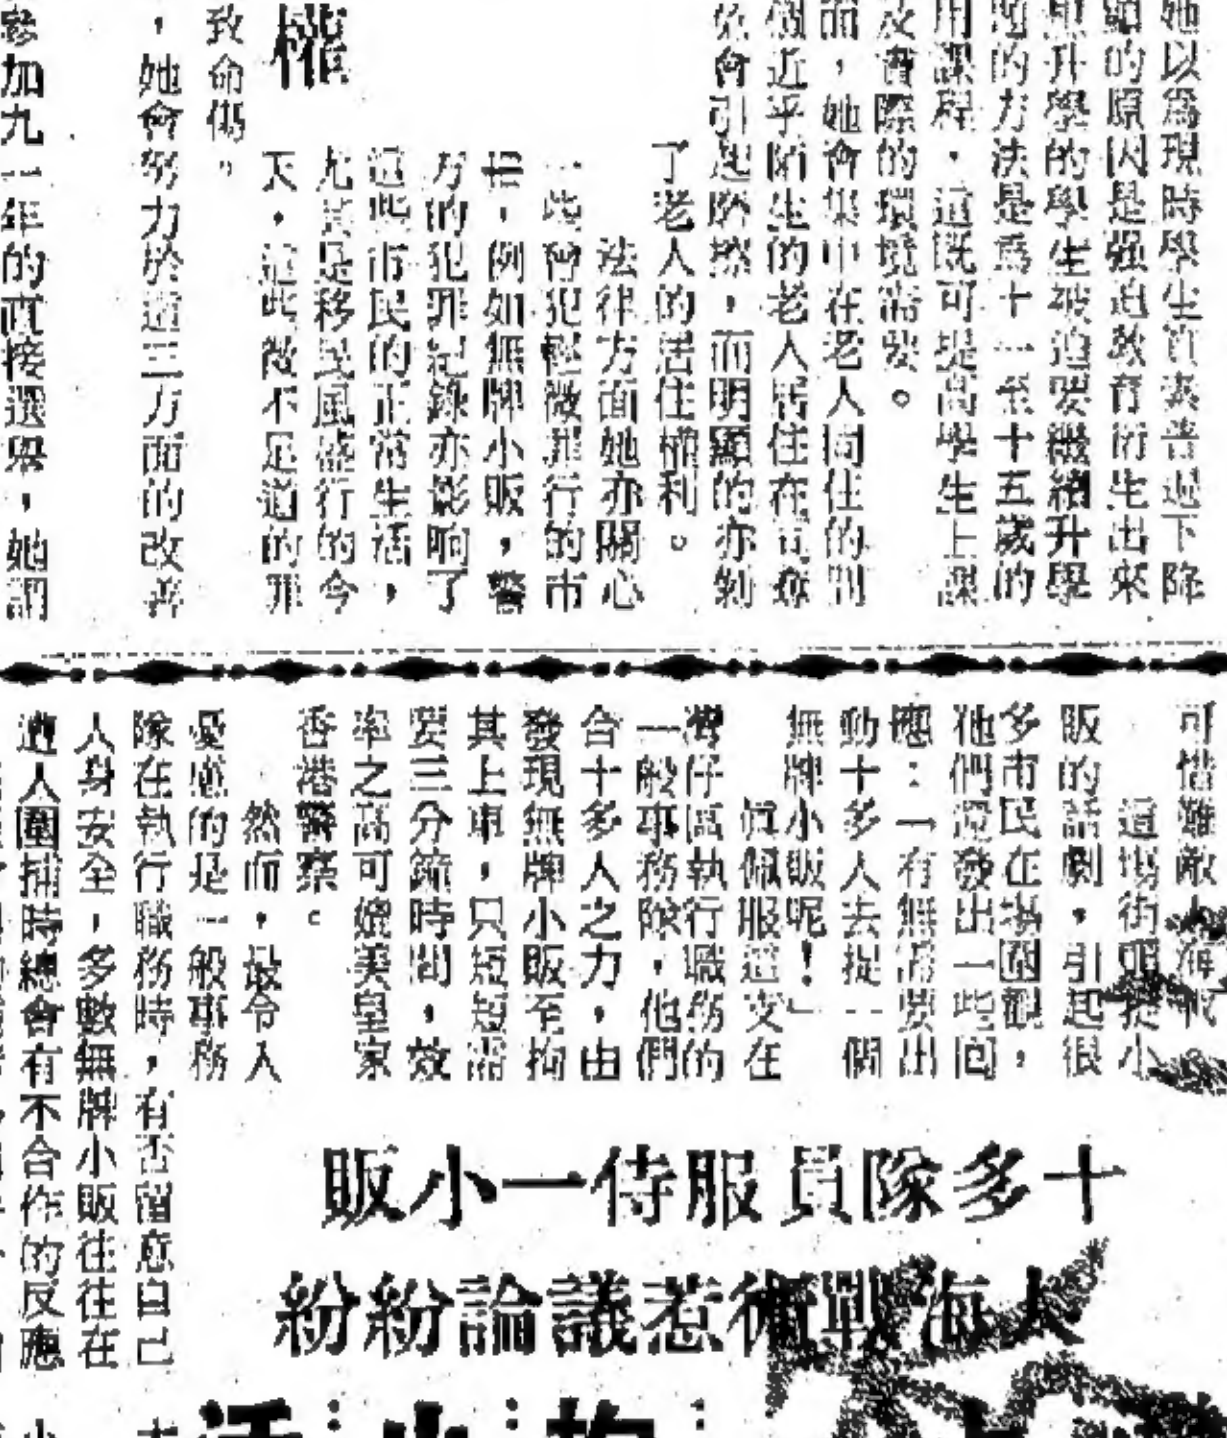 她以為現時學生質素普遍下降
的原因是强迫教育衍生出來
升學的學生被迫要繼續升學
的方法是爲十一至十五歲的
用課程，這既可提高學生上課
及實際的環境需要。
而，她會集中在老人同住的問
個近乎陌生的老人居住在
免會引起磨擦，而明顯的亦剝
了老人的居住權利。
法律方面她亦關心
一些曾犯輕微罪行的市
民，例如無牌小販，警
方的犯罪紀錄亦影响了
這些市民的正常生活，
尤其是移民風盛行的今
天，這些微不足道的罪
權
致命傷。
，她會努力於這三方面的改善
參加九一年的直接選舉，她謂
可惜難敵人海
這場街頭捉小
販的話劇，引起很
多市民在場圍觀，
他們還發出一些回
應：一有無需要出
動十多人去捉一個
無牌小販呢！」
眞佩服這支在
灣仔區執行職務的
一般事務隊，他們
合十多人之力，由
發現無牌小販至拘
其上車，只短短需
要三分鐘時間，效
率之高可媲美皇家
香港警察。
然而，最令人
憂慮的是一般事務
隊在執行職務時，有否留意自己
人身安全，多數無牌小販往往在
遭人圍捕時總會有不合作的反應
十多隊員服侍一小販
人海戰術惹議論紛紛